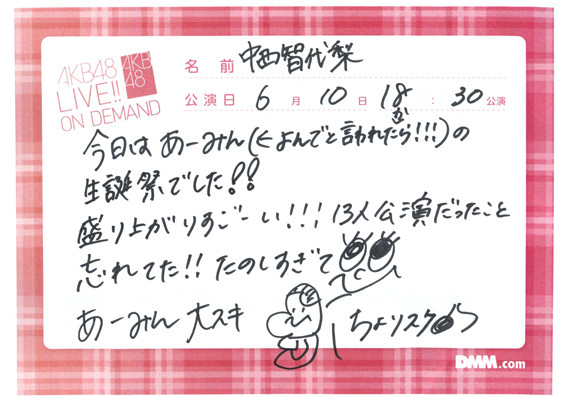 AKB48
LIVE!!
ON DEMAND
AKB
48
名前 中西智代梨
公演日 6月10日 18:30公演
今日はあーみん(←よんでと言われたから!!!)の
生誕祭でした!!
盛り上がりすごーい!!! 13人公演だったこと
忘れてた!! たのしすぎて
あーみん大スキ
ちよりスタ
DMM.com